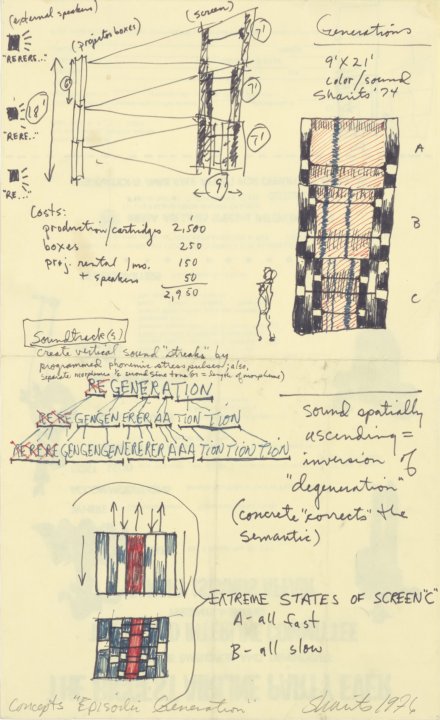 (external speakers)
(projector boxes)
(screen)
Generations
9' X 21'
color/sound
Sharits '74
"RERERE..."
"RERE.."
"RE..."
18'
6'
7'
7'
7'
9'
A
B
C
Costs:
production/cartridges 2,500
boxes 250
proj. rental / mo. 150
+ speakers 50
2,950
Soundtrack(s)
create vertical sound "streaks" by
programmed phonemic stress pulses; also,
REGENERATION
RERE GENGEN ERER AA TION TION
RERERE GENGENGEN ERERER AAA TION TION TION
sound spatially
ascending =
inversion of
"degeneration"
(concrete "corrects" the
semantic)
EXTREME STATES OF SCREEN "C"
A - all fast
B - all slow
Concepts "Episodic Generation"
Sharits 1976